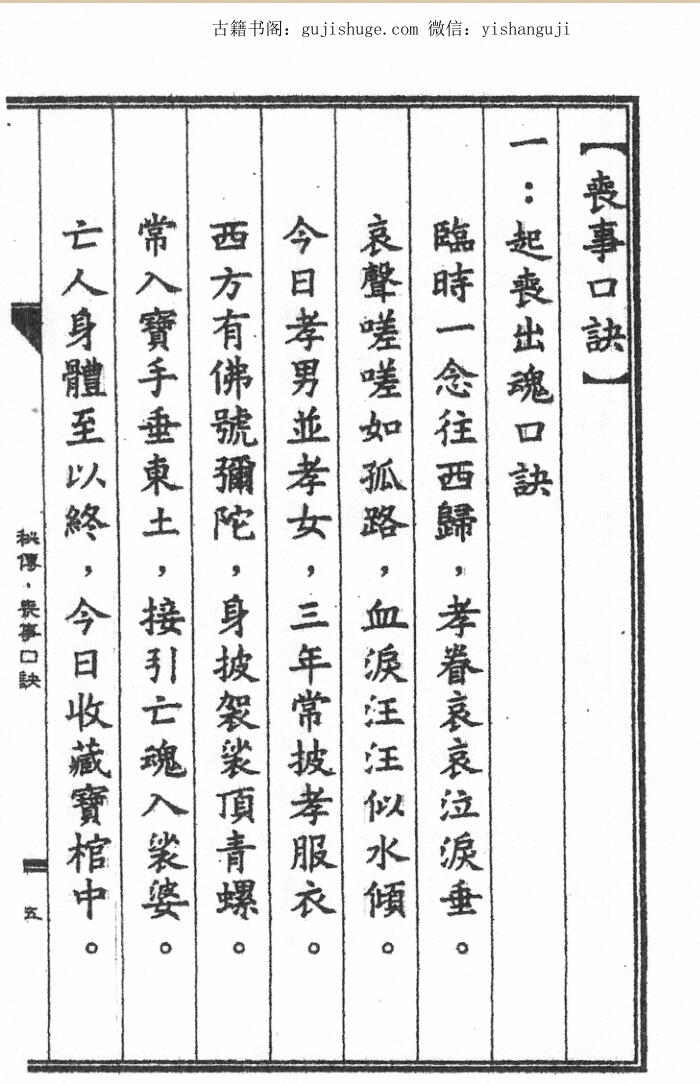 古籍书阁：gujishuge.com 微信：yishanguji
【喪事口訣】
一：起喪出魂口訣
臨時一念往西歸，孝眷哀哀泣淚垂。
哀聲嗟嗟如孤路，血淚汪汪似水傾。
今日孝男並孝女，三年常披孝服衣。
西方有佛號彌陀，身披袈裟頂青螺。
常入寶手垂東土，接引亡魂入裟婆。
亡人身體至以終，今日收藏寶棺中。
秘傳·喪事口訣
五